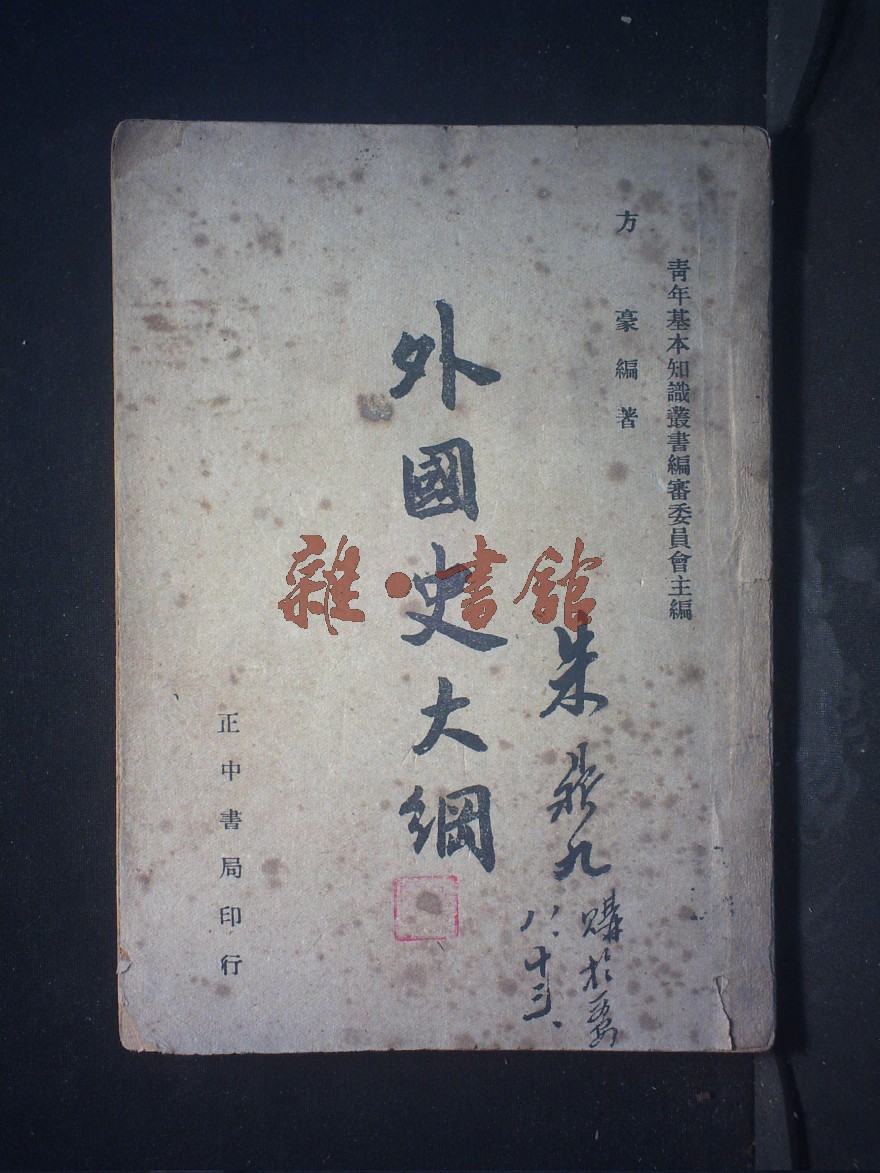 青年基本知識叢書編審委員會主編
方豪編著
外國史大綱
正中書局印行
雜·書館
朱 九
購於
八、十三、